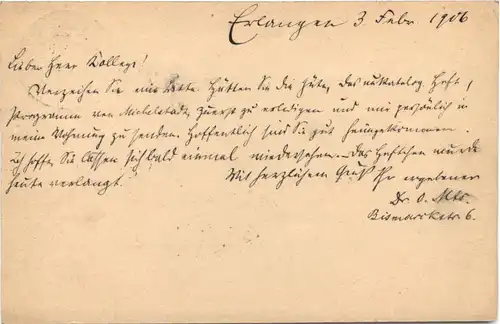 Erlangen 3 Febr 1906
Lieber Herr Kollege!
Verzeihen Sie mir bitte. Hätten Sie die Güte, das Heft,
Programm von Michelstadt, zuerst zu erledigen und mir persönlich in
meine Wohnung zu senden. Hoffentlich sind Sie gut heimgekommen.
ich hoffe, Sie lassen sich bald einmal wiedersehen. – Das Heftchen wurde
heute verlangt. Mit herzlichem Gruß Ihr ergebener
Dr. O.
Bismarckstr 6.